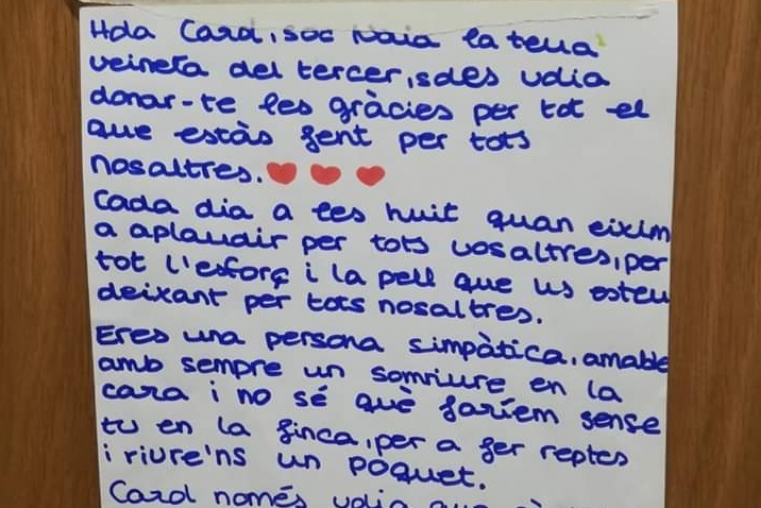 Hola Carol, soc Naia la teua
veïneta del tercer, sols volia
donar-te les gràcies per tot el
que estàs fent per tots
nosaltres. ❤️ ❤️ ❤️
Cada dia a les huit quan eixim
a aplaudir per tots vosaltres, per
tot l'esforç i la pell que us esteu
deixant per tots nosaltres.
Eres una persona simpàtica, amable
amb sempre un somriure en la
cara i no sé què faríem sense
tu en la finca, per a fer reptes
i riure'ns un poquet.
Carol només volia que